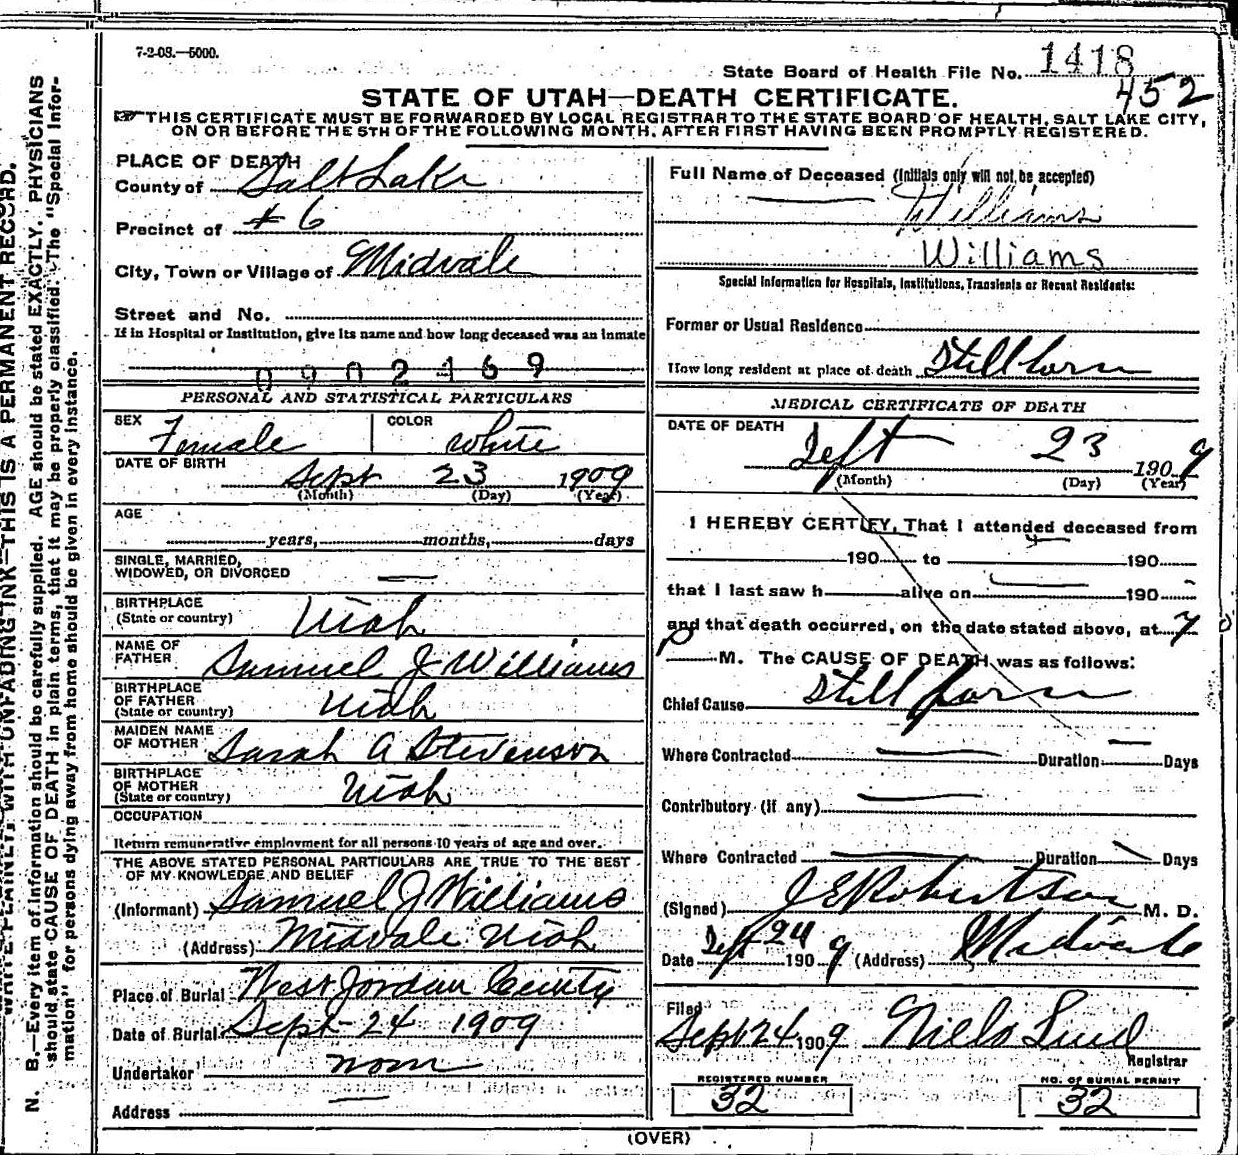 7-2-08.—5000.
State Board of Health File No. 1418
452
STATE OF UTAH—DEATH CERTIFICATE.
THIS CERTIFICATE MUST BE FORWARDED BY LOCAL REGISTRAR TO THE STATE BOARD OF HEALTH, SALT LAKE CITY,
ON OR BEFORE THE 5TH OF THE FOLLOWING MONTH, AFTER FIRST HAVING BEEN PROMPTLY REGISTERED.
PLACE OF DEATH
County of Salt Lake
Precinct of #6
City, Town or Village of Midvale
Street and No.
If in Hospital or Institution, give its name and how long deceased was an inmate
0902469
PERSONAL AND STATISTICAL PARTICULARS
SEX Female COLOR white
DATE OF BIRTH Sept 23 1909
(Month) (Day) (Year)
AGE
years, months, days
SINGLE, MARRIED,
WIDOWED, OR DIVORCED —
BIRTHPLACE
(State or country) Utah
NAME OF
FATHER Samuel J Williams
BIRTHPLACE
OF FATHER
(State or country) Utah
MAIDEN NAME
OF MOTHER Sarah A Stevenson
BIRTHPLACE
OF MOTHER
(State or country) Utah
OCCUPATION
Return remunerative employment for all persons 10 years of age and over.
THE ABOVE STATED PERSONAL PARTICULARS ARE TRUE TO THE BEST
OF MY KNOWLEDGE AND BELIEF
(Informant) Samuel J Williams
(Address) Midvale Utah
Place of Burial West Jordan
Date of Burial Sept-24 1909
Undertaker
Address —
Full Name of Deceased (Initials only will not be accepted)
— Williams
Williams
Special Information for Hospitals, Institutions, Transients or Recent Residents:
Former or Usual Residence
How long resident at place of death Stillborn
MEDICAL CERTIFICATE OF DEATH
DATE OF DEATH
Sept 23 1909
(Month) (Day) (Year)
I HEREBY CERTIFY, That I attended deceased from
190 to 190
that I last saw h alive on — 190
and that death occurred, on the date stated above, at 7
P M. The CAUSE OF DEATH was as follows:
Chief Cause Still born
Where Contracted — Duration — Days
Contributory (if any) —
Where Contracted — Duration — Days
(Signed) J E Robertson M. D.
Date Sept 24 1909 (Address) Midvale
Filed
Sept 24 1909 Niels Lind
Registrar
REGISTERED NUMBER
32
NO. OF BURIAL PERMIT
32
(OVER)
WRITE PLAINLY, WITH UNFADING INK—THIS IS A PERMANENT RECORD.
N. B.—Every item of information should be carefully supplied. AGE should be stated EXACTLY. PHYSICIANS
should state CAUSE OF DEATH in plain terms, that it may be properly classified. The "Special Infor-
mation" for persons dying away from home should be given in every instance.